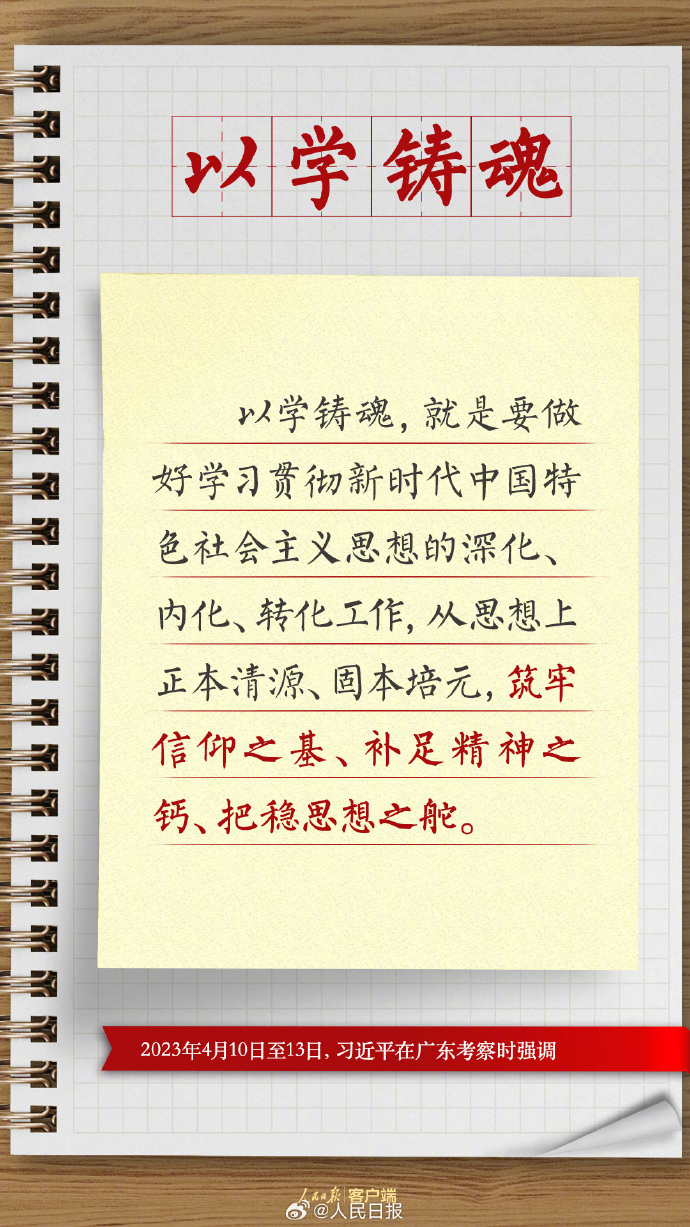 以学铸魂
以学铸魂，就是要做
好学习贯彻新时代中国特
色社会主义思想的深化、
内化、转化工作，从思想上
正本清源、固本培元，筑牢
信仰之基、补足精神之
钙、把稳思想之舵。
2023年4月10日至13日，习近平在广东考察时强调
人民日报 客户端
@人民日报